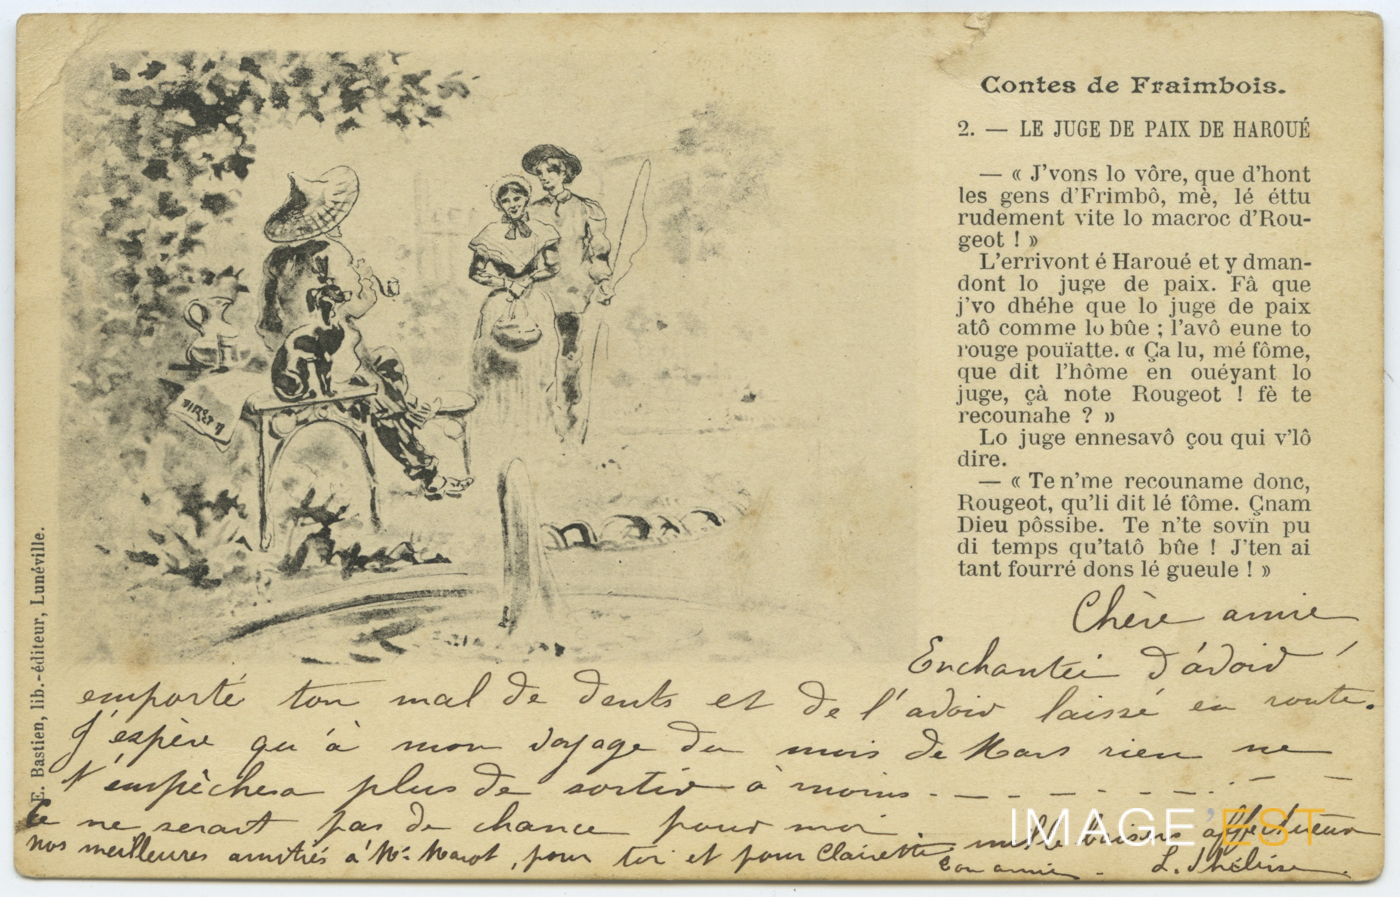 Contes de Fraimbois.
2. — LE JUGE DE PAIX DE HAROUÉ
— « J'vons lo vôre, que d'hont
les gens d'Frimbô, mè, lé éttu
rudement vite lo macroc d'Rou-
geot ! »
L'errivont é Haroué et y dman-
dont lo juge de paix. Fâ que
j'vo dhéhe que lo juge de paix
atô comme lo bûe ; l'avô eune to
rouge pouïatte. « Ça lu, mé fôme,
que dit l'hôme en ouéyant lo
juge, çà note Rougeot ! fè te
recounahe ? »
Lo juge ennesavô çou qui v'lô
dire.
— « Te n'me recouname donc,
Rougeot, qu'li dit lé fôme. Çnam
Dieu pôssibe. Te n'te sovïn pu
di temps qu'tatô bûe ! J'ten ai
tant fourré dons lé gueule ! »
E. Bastien, lib.-éditeur, Lunéville.
Chère amie
Enchantée d'avoir
emporté ton mal de dents et de l'avoir laissé en route.
J'espère qu'à mon voyage du mois de Mars rien ne
t'empêchera plus de sortir à moins - - - - - - -
Ce ne serait pas de chance pour moi
mille baisers affectueux
nos meilleures amitiés à Mr Marot, pour toi et pour Clairette
ton amie. L.
IMAGE'EST